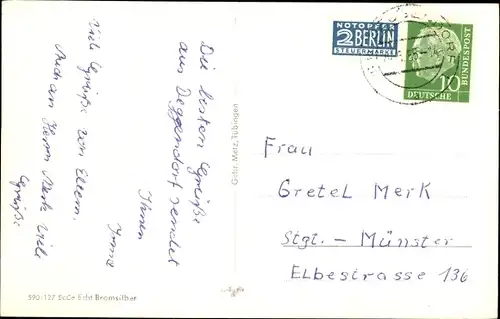 Die besten Grüße
aus Deggendorf sendet
Ihnen
Viele Grüße von Eltern.
Auch an Herrn Merk viele
Grüße
590/127 SoCo Echt Bromsilber
Gebr. Metz, Tübingen
NOTOPFER
2 BERLIN
STEUERMARKE
10
DEUTSCHE
BUNDESPOST
Frau
Gretel Merk
Stgt. – Münster
Elbestrasse 136